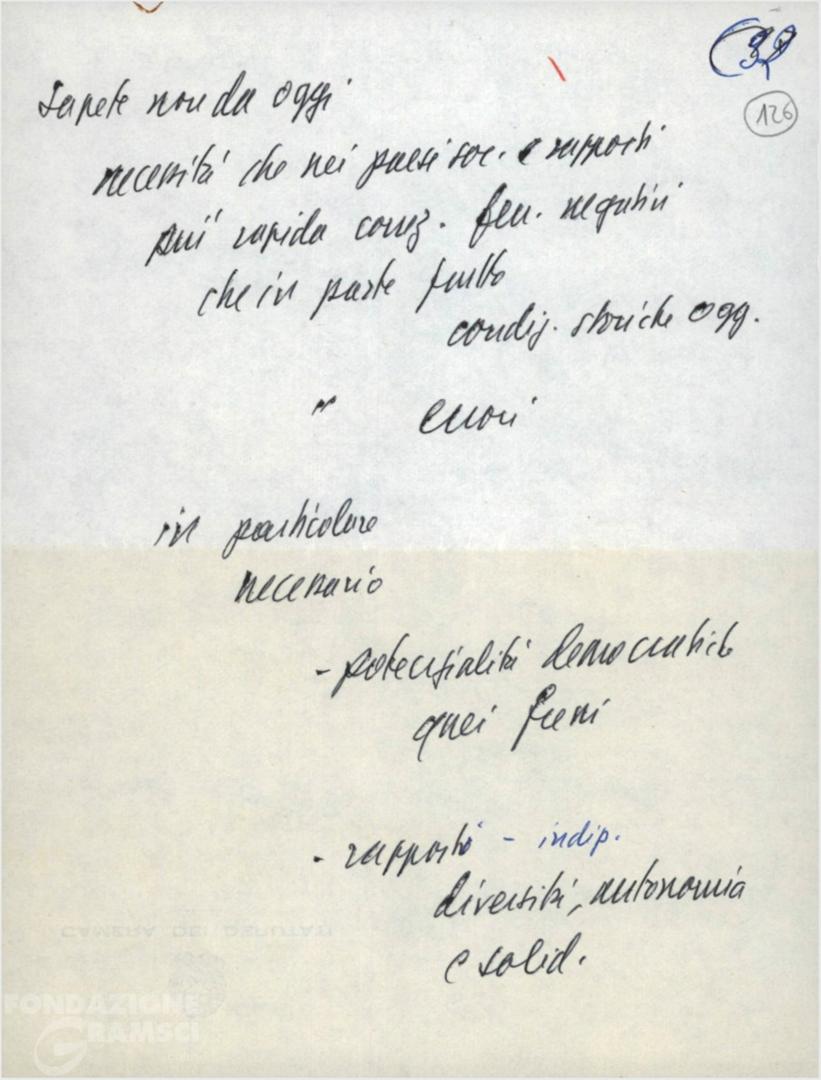 (39
126
Sapete non da oggi
necessità che nei paesi soc. e rapporti
più rapida correz. fen. negativi
che in parte frutto
condiz. storiche ogg.
" errori
in particolare
necessario
- potenzialità democratiche
quei freni
- rapporti - indip.
diversità, autonomia
e solid.
CAMERA DEI DEPUTATI
FONDAZIONE
GRAMSCI